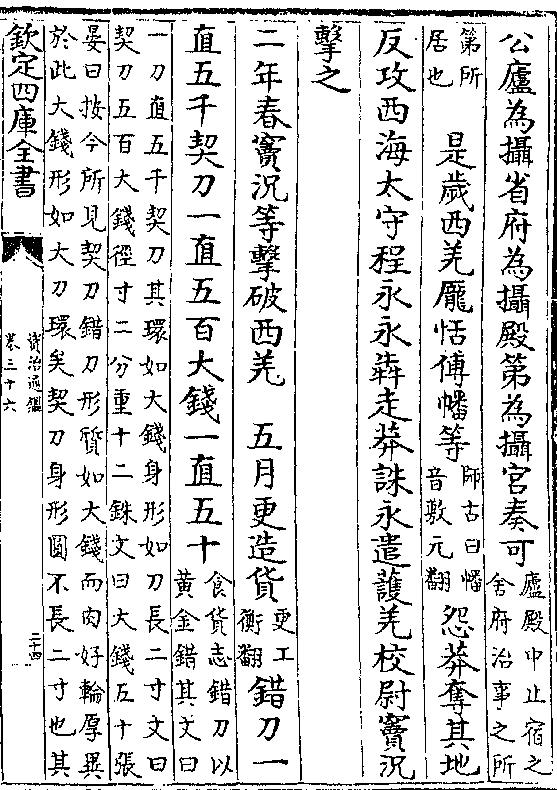 公廬為攝省府為攝殿第為攝宮奏可廬殿中止宿之舍府治事之所
第所居也　是歲西羌龐恬傅幡等師古曰幡音敷元翻怨莽奪其地
反攻西海太守程永永犇走莽誅永遣護羌校尉竇況
擊之
二年春竇況等擊破西羌　五月更造貨更工衡翻錯刀一
直五千契刀一直五百大錢一直五十食貨志錯刀以黃金錯其文曰
一刀直五千契刀其環如大錢身形如刀長二寸文曰
契刀五百大錢徑寸二分重十二銖文曰大錢五十張
晏曰按今所見契刀錯刀形質如大錢而肉好輪厚異
於此大錢形如大刀環矣契刀身形圓不長二寸也其
欽定四庫全書
資治通鑑
卷三十六
二十四